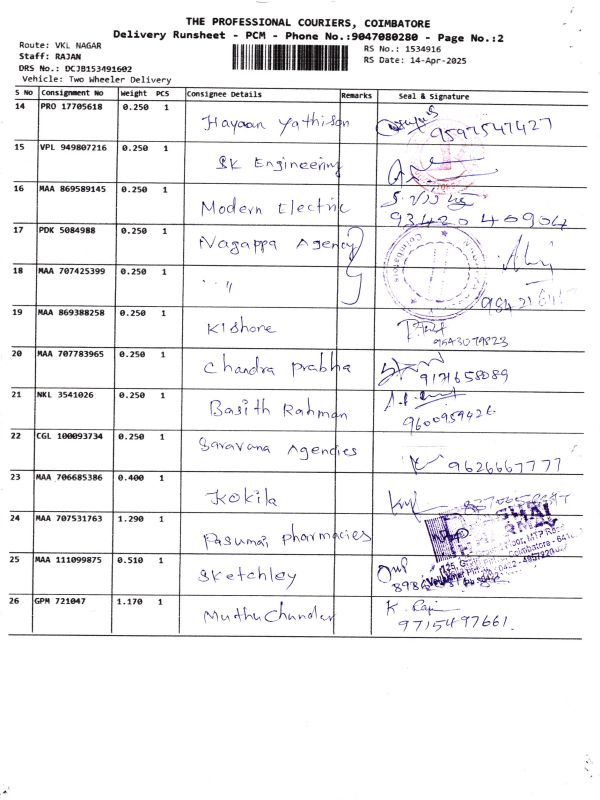 THE PROFESSIONAL COURIERS, COIMBATORE
Delivery Runsheet - PCM - Phone No.:9047080280 - Page No.:2
Route: VKL NAGAR
RS No.: 1534916
Staff: RAJAN
RS Date: 14-Apr-2025
DRS No.: DCJB153491602
Vehicle: Two Wheeler Delivery
S No Consignment No Weight PCS Consignee Details Remarks Seal & Signature
14 PRO 17705618 0.250 1 Hayaan Yathison 9597547427
15 VPL 949807216 0.250 1 SK Engineering
16 MAA 869589145 0.250 1 Modern Electric
93420 40904
17 PDK 5084988 0.250 1 Nagappa Agency
18 MAA 707425399 0.250 1 " "
19 MAA 869388258 0.250 1 Kishore
9543079823
20 MAA 707783965 0.250 1 Chandra prabha 9171658089
21 NKL 3541026 0.250 1 Basith Rahman
9600959426
22 CGL 100093734 0.250 1 Saravana Agencies 9626667777
23 MAA 706685386 0.400 1 Kokila
24 MAA 707531763 1.290 1 Pasumai pharmacies
25 MAA 111099875 0.510 1 Sketchley
26 GPM 721047 1.170 1 MuthuChandar K. Raji
9715497661.